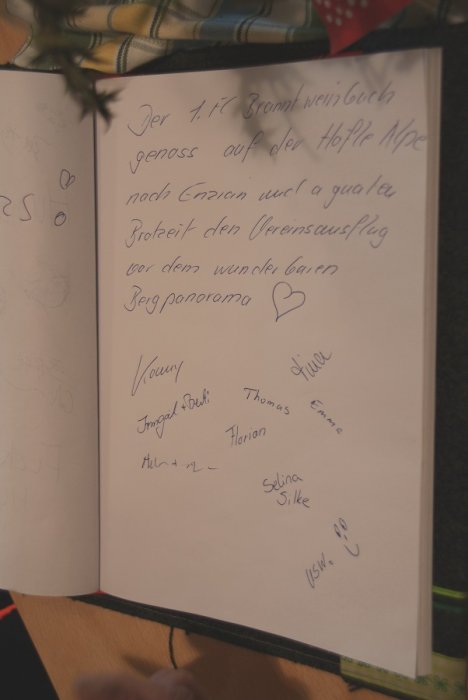 Der 1. FC Branntweinbuch
genoss auf der Höfle Alpe
nach Enzian und a guaten
Brotzeit den Vereinsausflug
vor dem wunderbaren
Bergpanorama
Conny
Tina
Irmgal +
Thomas
Emma
Florian
Selina
Silke
usw.